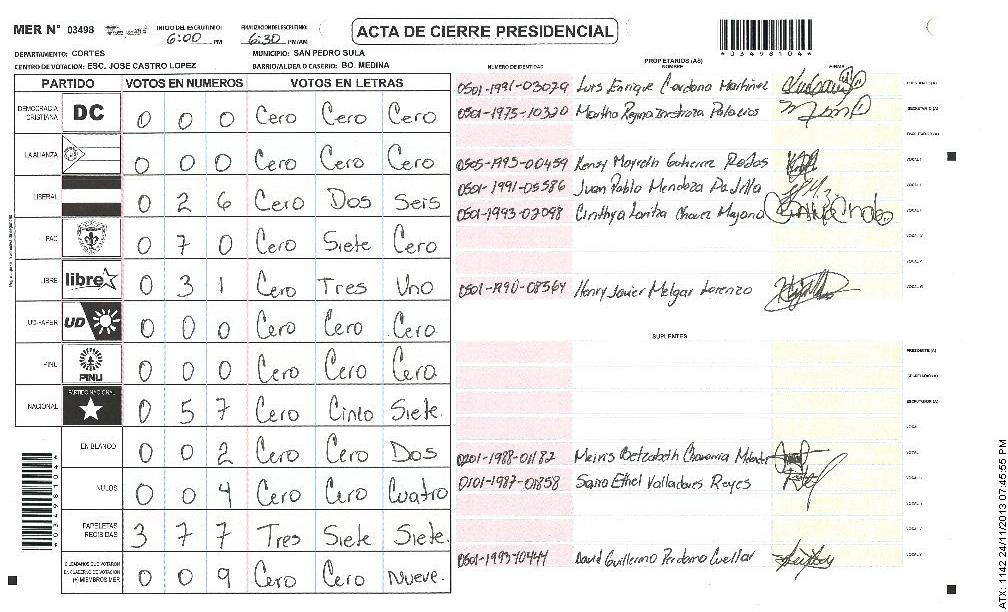 MER N° 03498 INICIO DEL ESCRUTINIO: 6:00 PM FINALIZACION DEL ESCRUTINIO: 6:30 PM/AM ACTA DE CIERRE PRESIDENCIAL
*03498104*
DEPARTAMENTO: CORTES MUNICIPIO: SAN PEDRO SULA
CENTRO DE VOTACION: ESC. JOSE CASTRO LOPEZ BARRIO/ALDEA O CASERIO: BO. MEDINA
PARTIDO VOTOS EN NUMEROS VOTOS EN LETRAS
DEMOCRACIA CRISTIANA DC 0 0 0 Cero Cero Cero
LA ALIANZA 0 0 0 Cero Cero Cero
LIBERAL 0 2 6 Cero Dos Seis
PAC 0 7 0 Cero Siete Cero
LIBRE libre 0 3 1 Cero Tres Uno
UD-FAPER UD 0 0 0 Cero Cero Cero
PINU PINU 0 0 0 Cero Cero Cero
NACIONAL PARTIDO NACIONAL 0 5 7 Cero Cinco Siete.
EN BLANCO 0 0 2 Cero Cero Dos
NULOS 0 0 4 Cero Cero Cuatro
PAPELETAS RECIBIDAS 3 7 7 Tres Siete Siete.
CIUDADANOS QUE VOTARON EN CUADERNO DE VOTACION (+) MIEMBROS MER 0 0 9 Cero Cero Nueve.
PROPIETARIOS (AS)
NUMERO DE IDENTIDAD NOMBRE FIRMA
0501-1991-03029 Luis Enrique Cardona Martinez PRESIDENTE (A)
0501-1975-10320 Martha Regina Palacios SECRETARIO (A)
ESCRUTADOR (A)
0505-1993-00459 Kensy Mayreth Gutierrez VOCAL I
0501-1991-05586 Juan Pablo Mendoza Padilla
0501-1993-02098 Cinthya Lariza Chavez
0501-1990-08564 Henry Javier Melgar Lorenzo
SUPLENTES
PRESIDENTE (A)
SECRETARIO (A)
ESCRUTADOR (A)
0201-1988-01182 Meivis Betzabeth Chavarria
0101-1987-01858 Saira Ethel Valladares Reyes
0501-1993-10444 David Guillermo Perdomo Cuellar
ATX: 1142 24/11/2013 07:45:55 PM